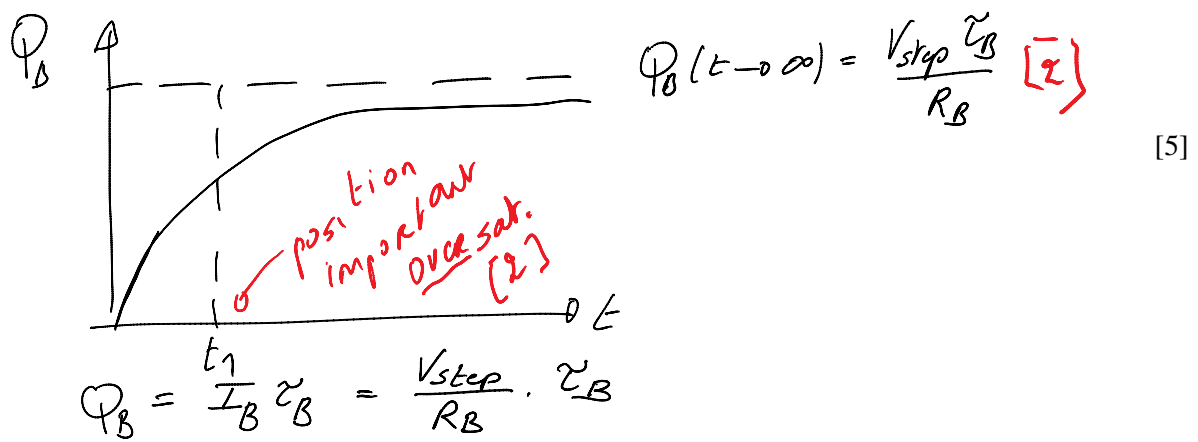 Q_B
Q_B (t→∞) = V_step τ_B / R_B [2]
[5]
position
important
over sat.
[2]
t
t_1
Q_B = I_B τ_B = V_step / R_B . τ_B